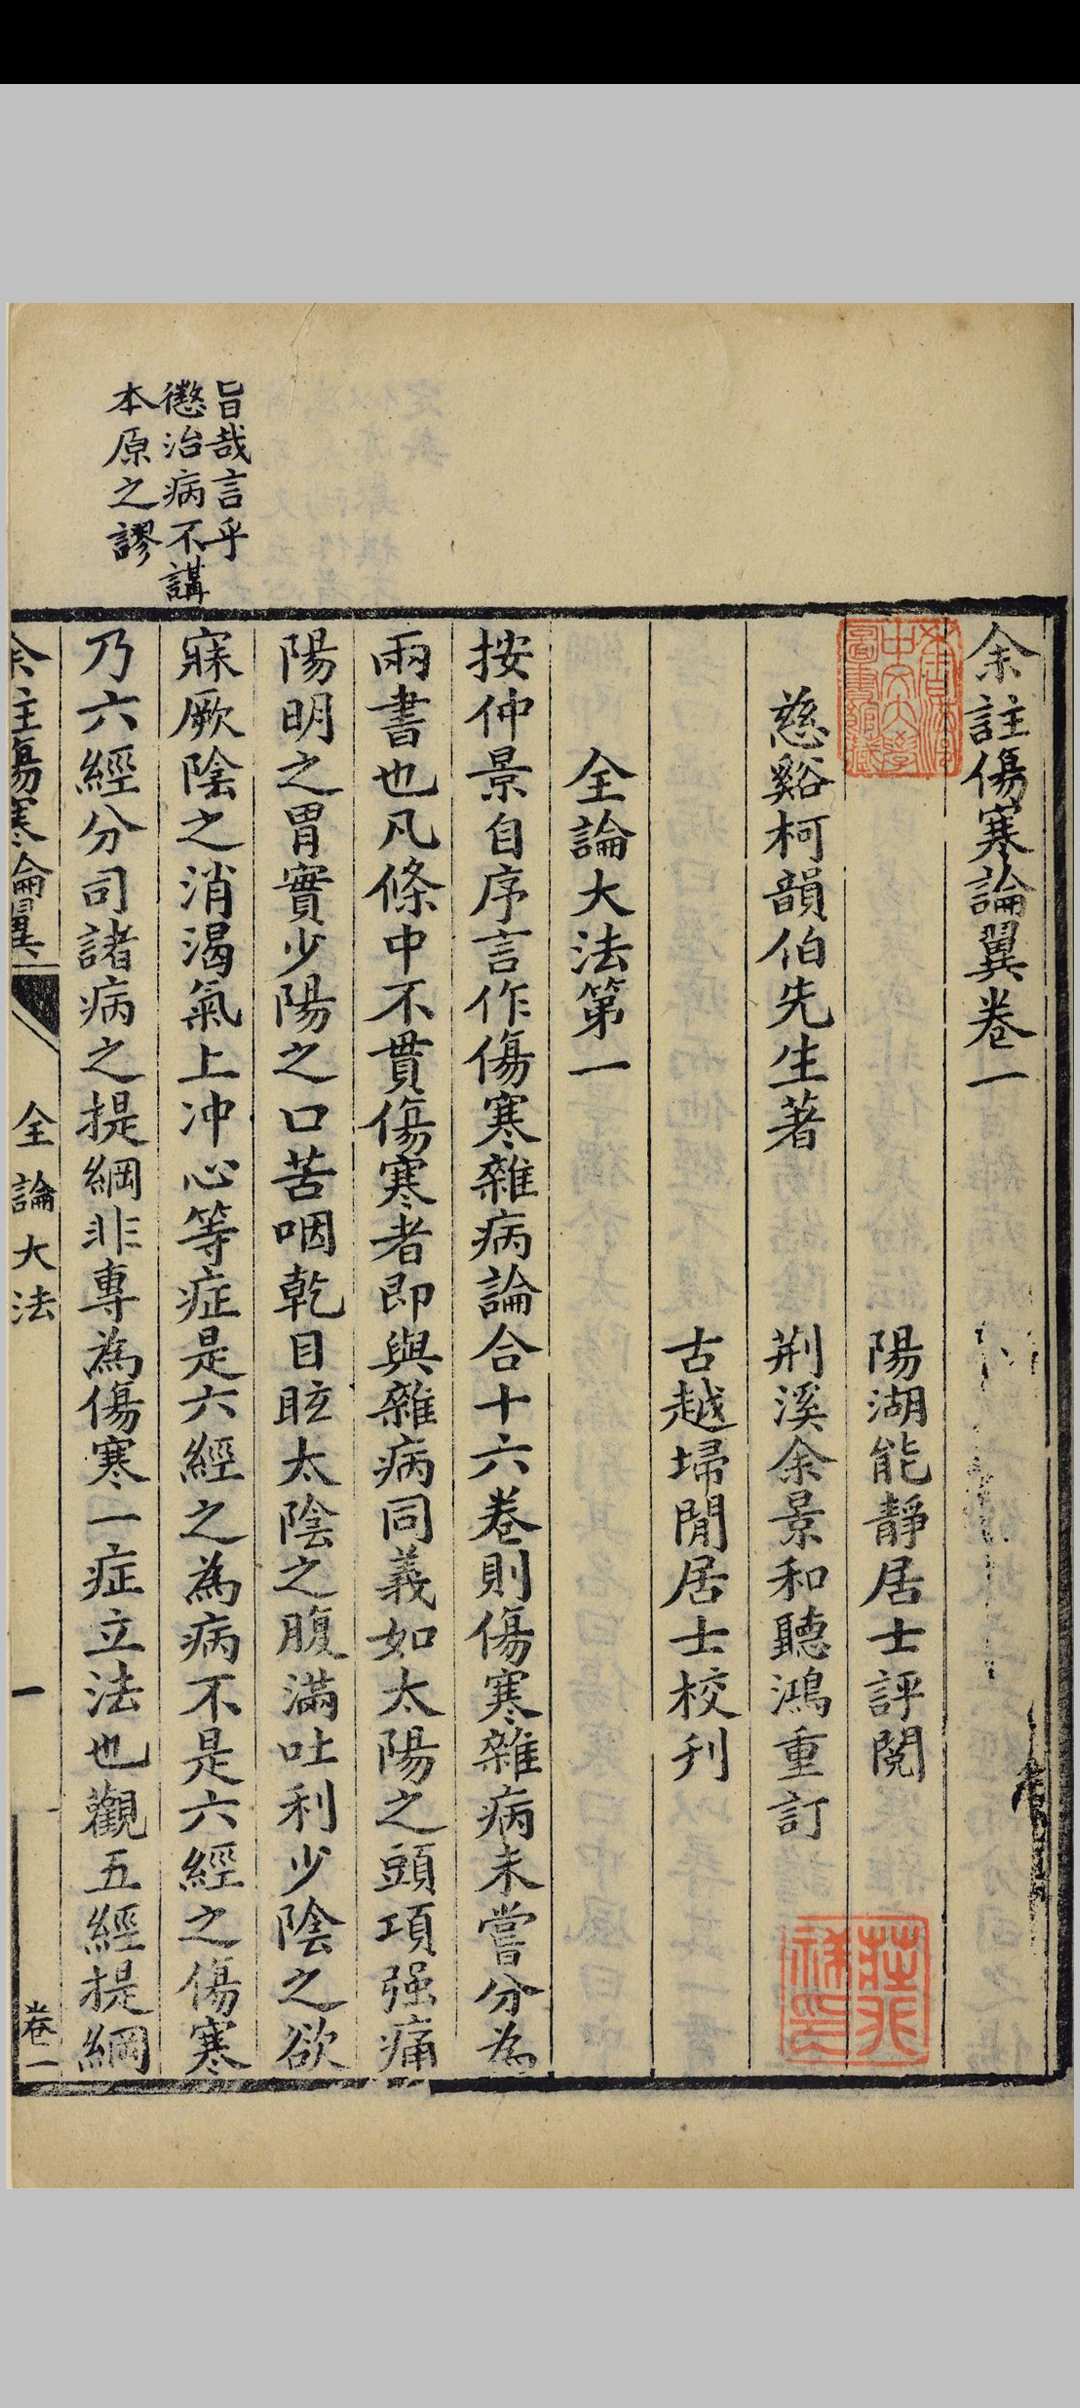 余註傷寒論翼卷一
陽湖能靜居士評閱
慈谿柯韻伯先生著　荆溪余景和聽鴻重訂
古越埽閒居士校刋
全論大法第一
按仲景自序言作傷寒雜病論合十六卷則傷寒雜病未嘗分為
兩書也凡條中不貫傷寒者即與雜病同義如太陽之頭項强痛
陽明之胃實少陽之口苦咽乾目眩太陰之腹滿吐利少陰之欲
寐厥陰之消渴氣上冲心等症是六經之為病不是六經之傷寒
乃六經分司諸病之提綱非專為傷寒一症立法也觀五經提綱
旨哉言乎
懲治病不講
本原之謬
余註傷寒論翼
全論大法
一
卷一